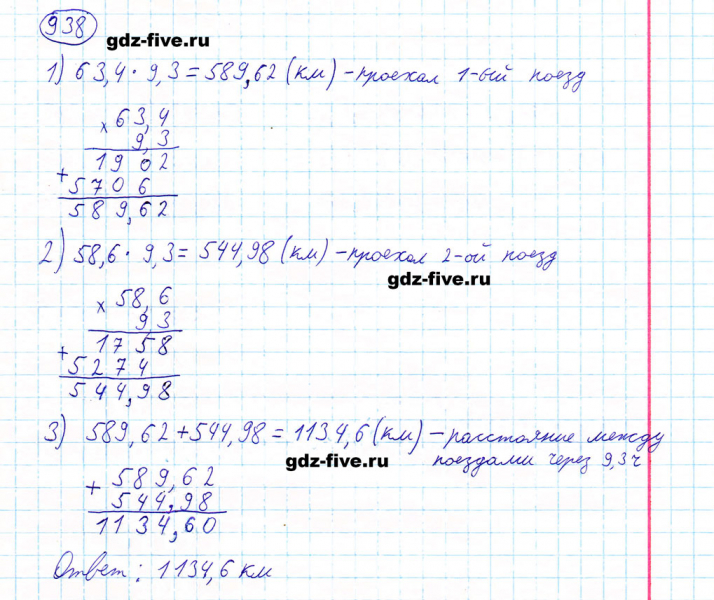 938
gdz-five.ru
1) 63,4 · 9,3 = 589,62 (км) – проехал 1-ый поезд
× 63,4
9,3
1902
+ 5706
589,62
2) 58,6 · 9,3 = 544,98 (км) – проехал 2-ой поезд
gdz-five.ru
× 58,6
9,3
1758
+ 5274
544,98
3) 589,62 + 544,98 = 1134,6 (км) – расстояние между
поездами через 9,3 ч
gdz-five.ru
+ 589,62
544,98
1134,60
Ответ: 1134,6 км